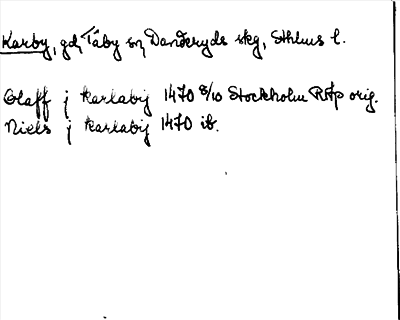 Karby, gd, Täby sn, Danderyds skg, Sthlms l.
Olaff j karlaby 1470 8/10 Stockholm RAp orig.
Niels j karlaby 1470 ib.